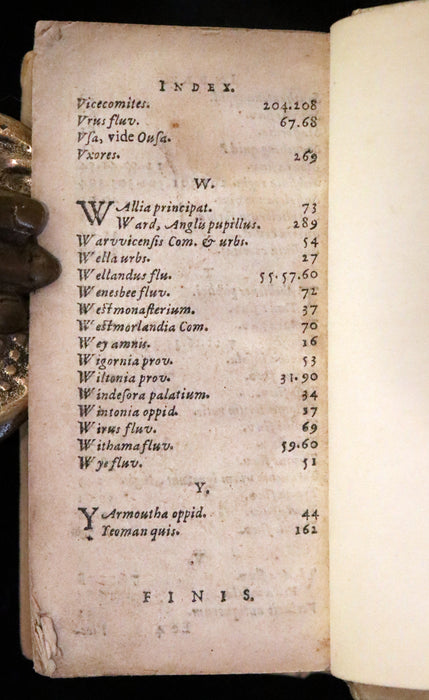 INDEX.
Vicecomites. 204.208
Vrus fluv. 67.68
Vſa, vide Ouſa.
Vxores. 269
W.
WAllia principat. 73
Ward, Anglis pupillus. 289
Warvvicenſis Com. & urbs. 54
Wella urbs. 27
Wellandus flu. 55.57.60
Wenesbee fluv. 72
Weſtmonaſterium. 37
Weſtmorlandia Com. 70
Wey amnis. 16
Wigornia prov. 53
Wiltonia prov. 31.90
Windeſora palatium. 34
Wintonia oppid. 17
Wirus fluv. 69
Withama fluv. 59.60
Wye fluv. 51
Y.
YArmoutha oppid. 44
Yeoman quis. 162
FINIS.